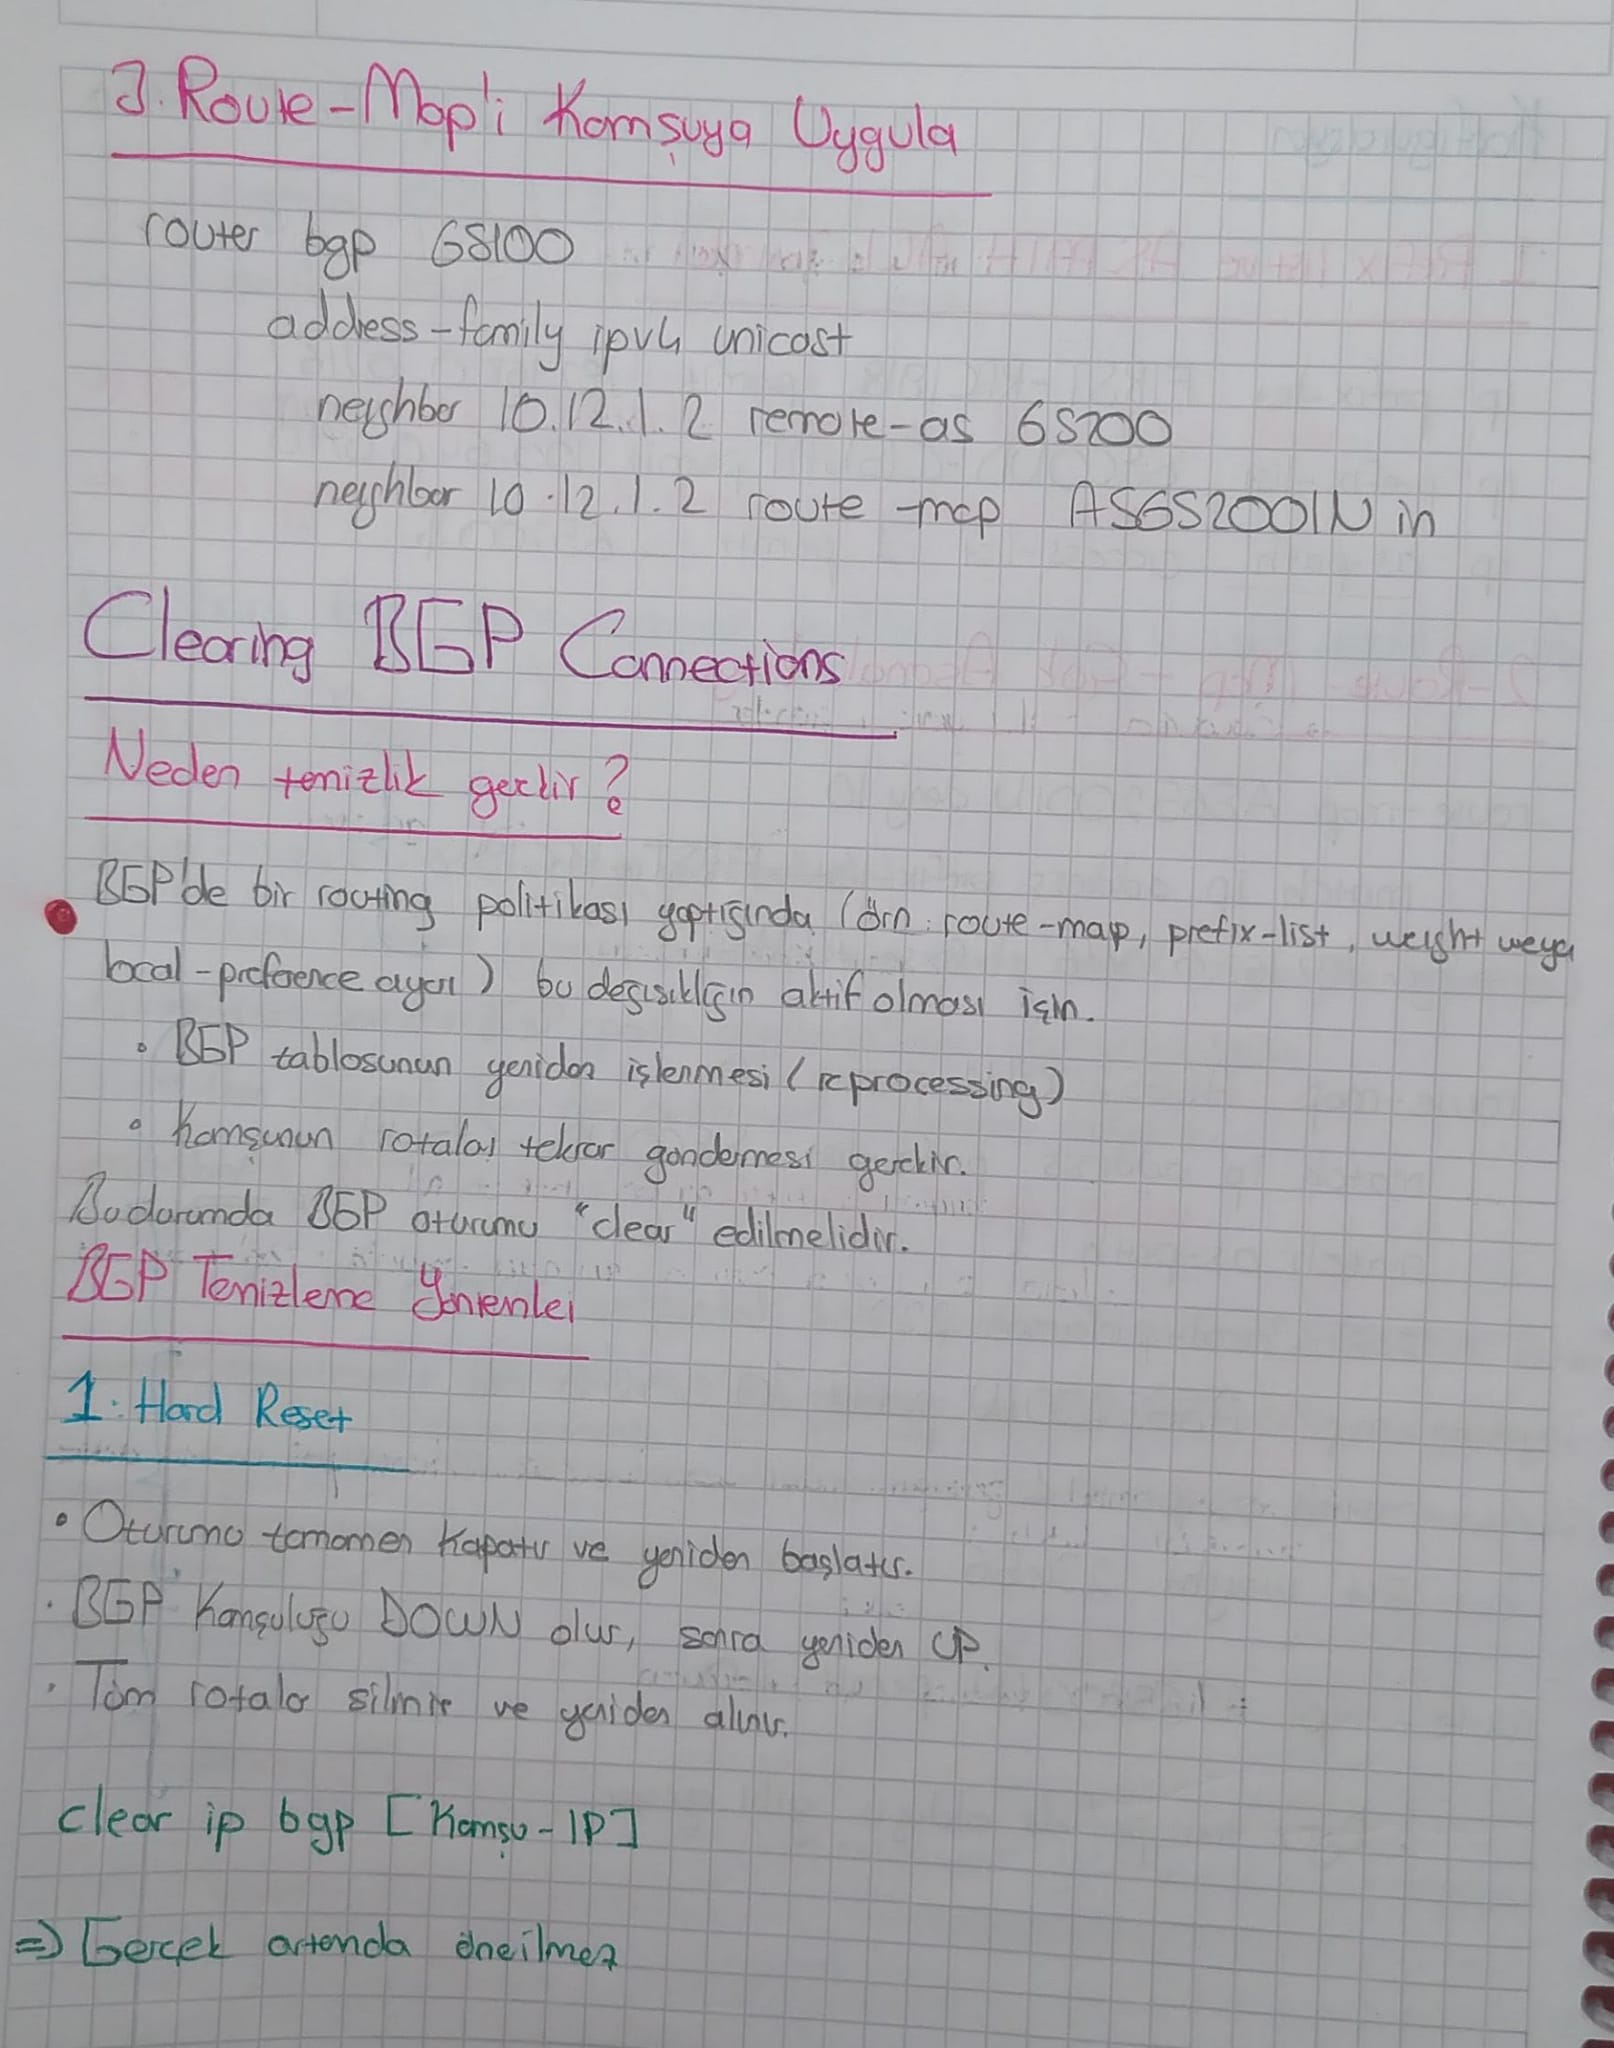 3. Route-Map'i Komşuya Uygula
router bgp 65100
address-family ipv4 unicast
neighbor 10.12.1.2 remote-as 65200
neighbor 10.12.1.2 route-map AS65200IN in
Clearing BGP Connections
Neden temizlik gerekir?
BGP'de bir routing politikası yaptığında (örn: route-map, prefix-list, weight veya
local-preference ayarı) bu değişikliğin aktif olması için.
• BGP tablosunun yeniden işlenmesi (reprocessing)
• Komşunun rotaları tekrar göndermesi gerekir.
Bu durumda BGP oturumu "clear" edilmelidir.
BGP Temizleme Yöntemleri
1. Hard Reset
• Oturumu tamamen kapatır ve yeniden başlatır.
• BGP Komşuluğu DOWN olur, sonra yeniden UP.
• Tüm rotalar silinir ve yeniden alınır.
clear ip bgp [Komşu-IP]
=> Gerçek ortamda önerilmez